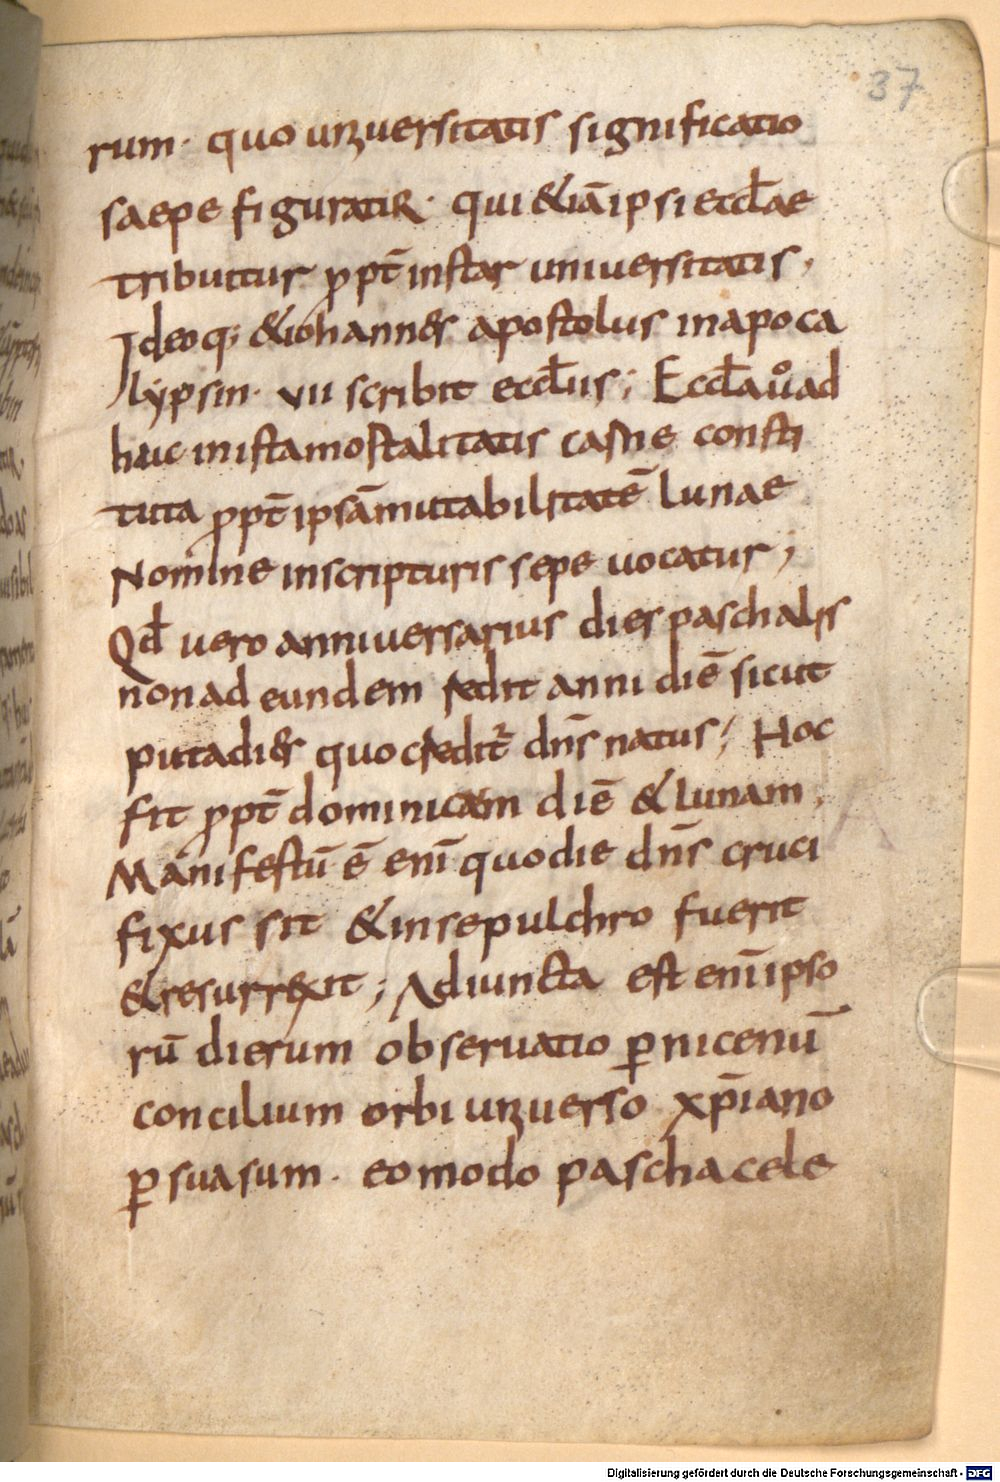 37
rum· quo uniuersitatis significatio
saepe figuratur· qui &iā ipsi eccƚae
tribuitur ꝓpt̄ instar uniuersitatis,
Ideoq; &iohann&s apostolus inapoca
lypsin· vii scribit eccƚiis; Eccƚa uͦ ad
huc inista mortalitatis carne consti
tuta ꝓpt̄ ipsā mutabilitatē lunae
Nomine inscripturis sepe uocatur;
Qđ uero anniuersarius dies paschalis
non ad eundem redit anni diē sicut
puta dies quo credit᷑ dn̄s natus; Hoc
fit ꝓpt̄ dominicam diē & lunam,
Manifestū ē enī quo die dn̄s cruci
fixus sit & insepulchro fuerit
& resurrexit; Adiuncta est enī ipso
rū dierum obseruatio ꝑ nicenū
concilium orbi uniuerso xp̄iano
ꝑsuasum· eo modo pascha cele
Digitalisierung gefördert durch die Deutsche Forschungsgemeinschaft - DFG